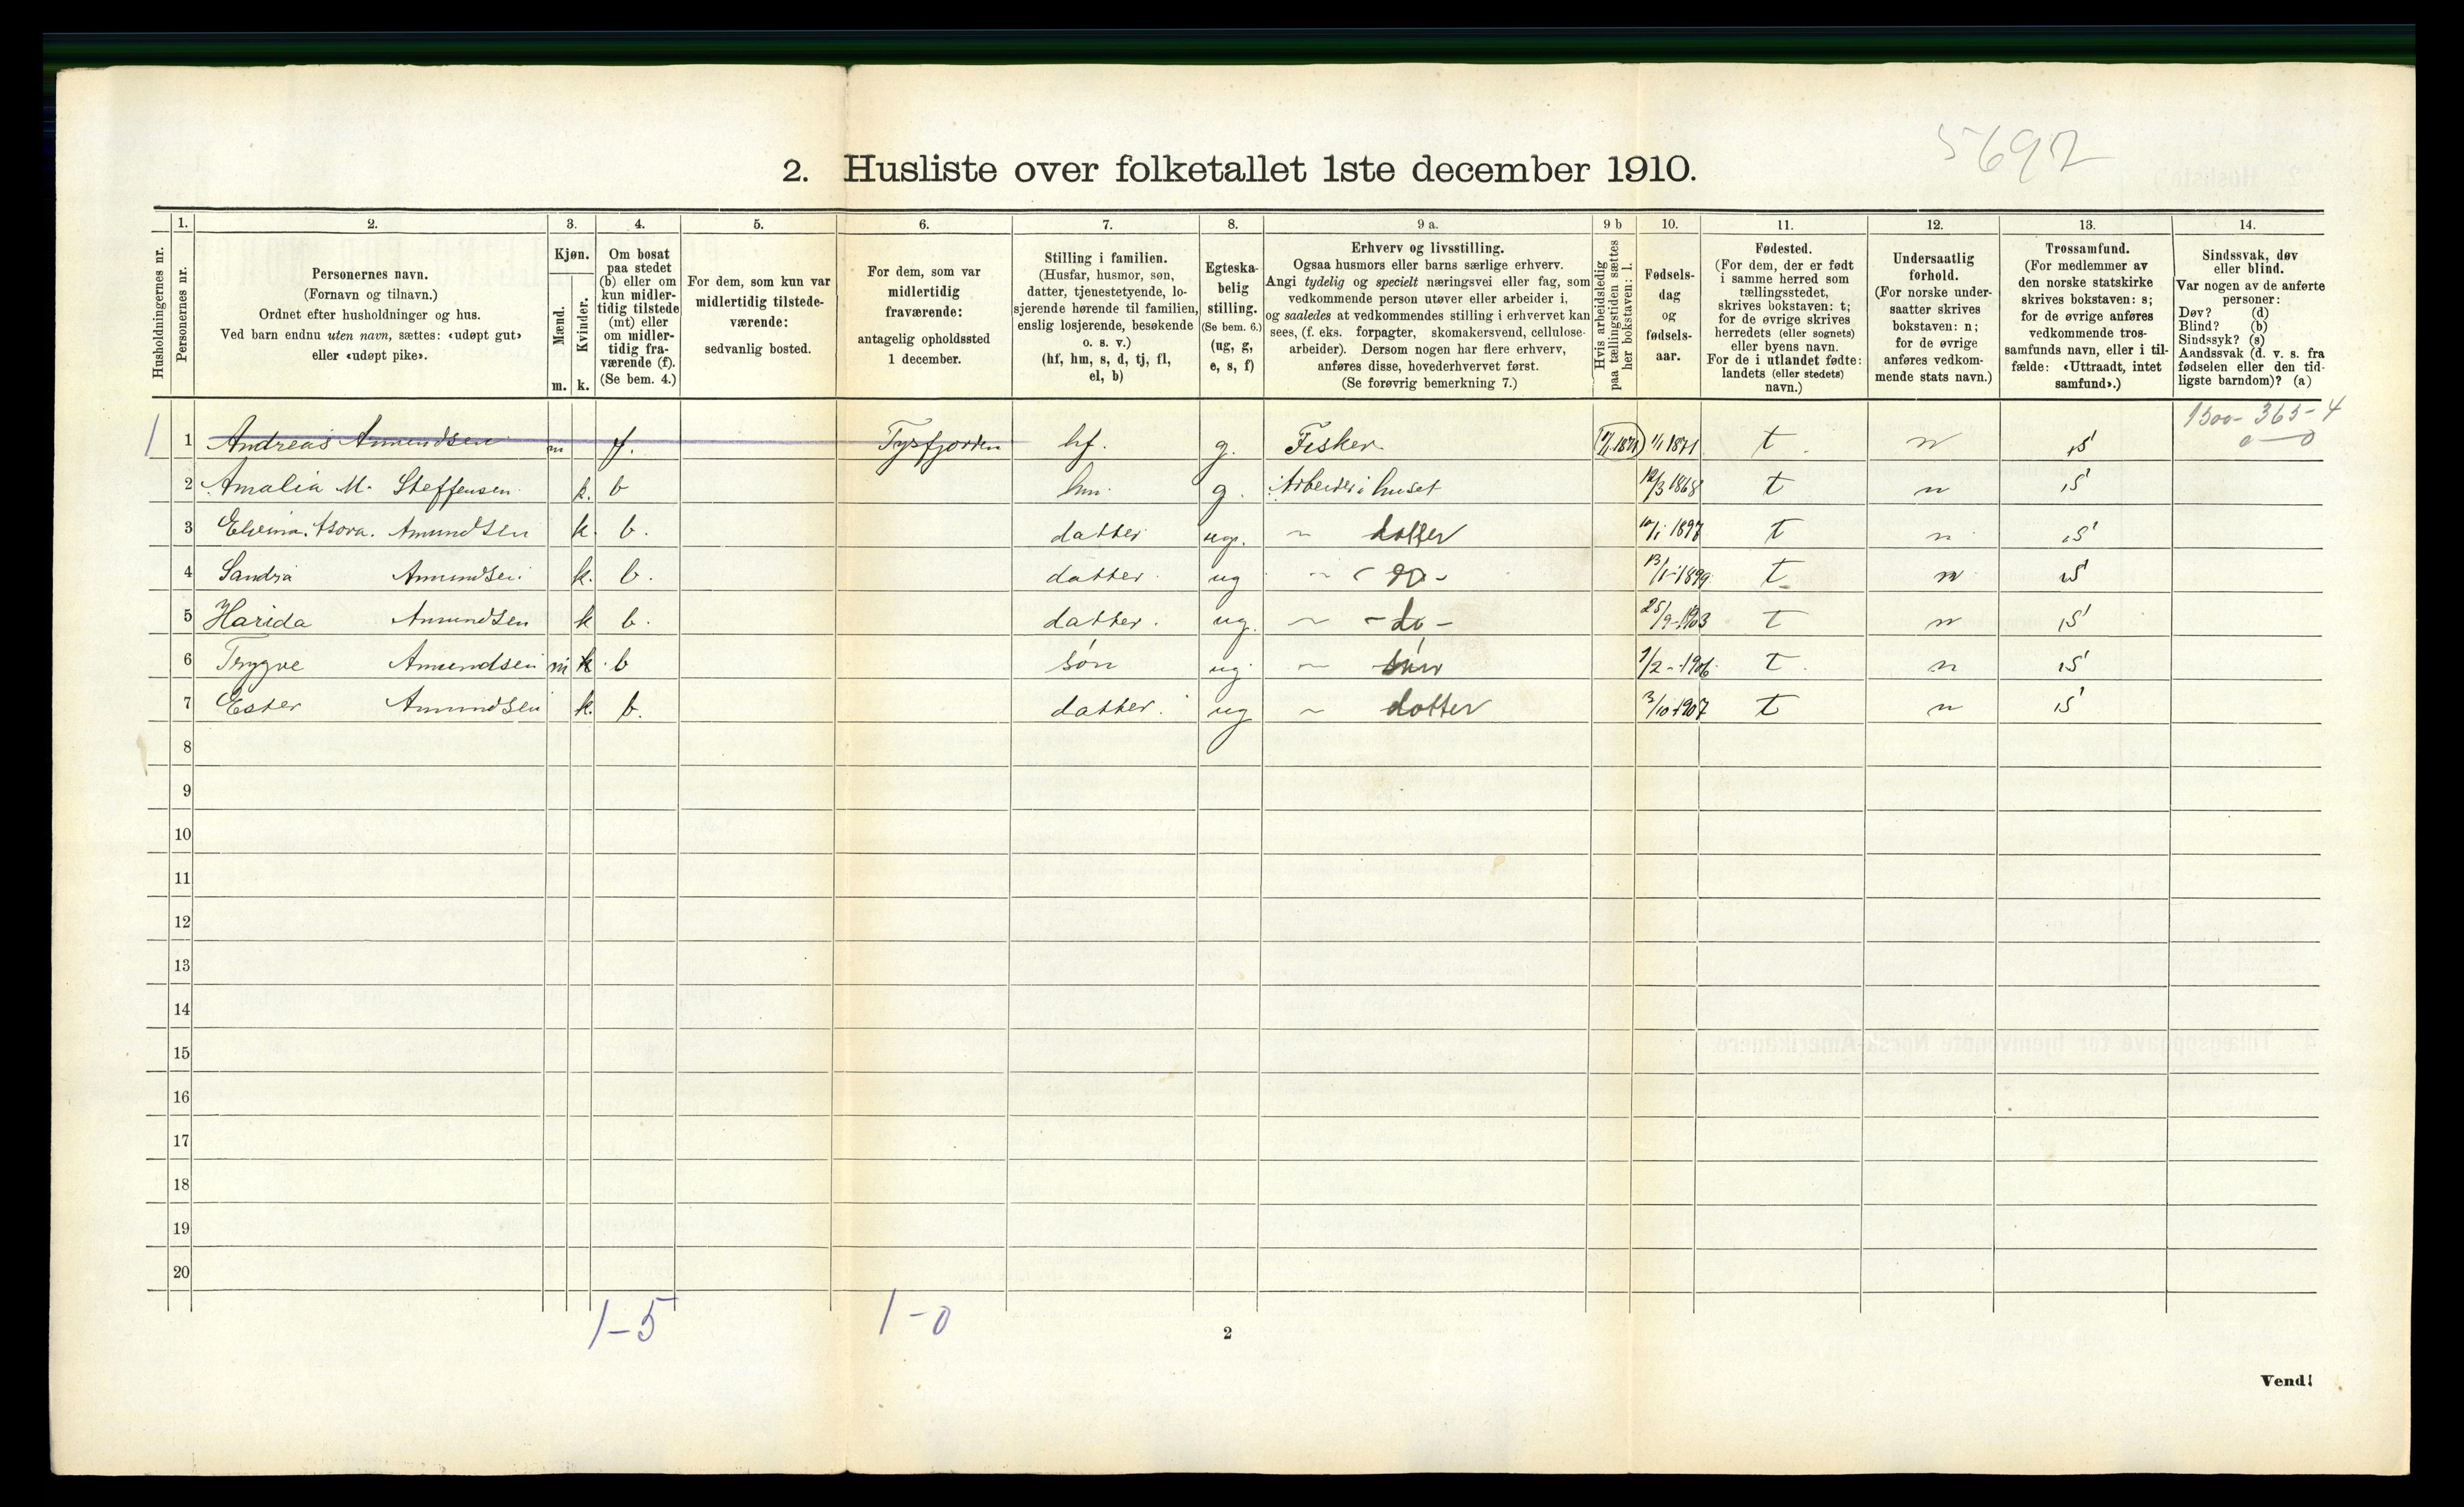 5692
2. Husliste over folketallet 1ste december 1910.
Husholdningernes nr.
1.
Personernes nr.
2.
Personernes navn.
(Fornavn og tilnavn.)
Ordnet efter husholdninger og hus.
Ved barn endnu uten navn, sættes: «udøpt gut»
eller «udøpt pike».
3.
Kjøn.
Mænd.
Kvinder.
m. k.
4.
Om bosat
paa stedet
(b) eller om
kun midler-
tidig tilstede
(mt) eller
om midler-
tidig fra-
værende (f).
(Se bem. 4.)
5.
For dem, som kun var
midlertidig tilstede-
værende:
sedvanlig bosted.
6.
For dem, som var
midlertidig
fraværende:
antagelig opholdssted
1 december.
7.
Stilling i familien.
(Husfar, husmor, søn,
datter, tjenestetyende, lo-
sjerende hørende til familien,
enslig losjerende, besøkende
o. s. v.)
(hf, hm, s, d, tj, fl,
el, b)
8.
Egteska-
belig
stilling.
(Se bem. 6.)
(ug, g,
e, s, f)
9 a.
Erhverv og livsstilling.
Ogsaa husmors eller barns særlige erhverv.
Angi tydelig og specielt næringsvei eller fag, som
vedkommende person utøver eller arbeider i,
og saaledes at vedkommendes stilling i erhvervet kan
sees, (f. eks. forpagter, skomakersvend, cellulose-
arbeider). Dersom nogen har flere erhverv,
anføres disse, hovederhvervet først.
(Se forøvrig bemerkning 7.)
9 b
Hvis arbeidsledig
paa tællingstiden sættes
her bokstaven: l.
10.
Fødsels-
dag
og
fødsels-
aar.
11.
Fødested.
(For dem, der er født
i samme herred som
tællingsstedet,
skrives bokstaven: t;
for de øvrige skrives
herredets (eller sognets)
eller byens navn.
For de i utlandet fødte:
landets (eller stedets)
navn.)
12.
Undersaatlig
forhold.
(For norske under-
saatter skrives
bokstaven: n;
for de øvrige
anføres vedkom-
mende stats navn.)
13.
Trossamfund.
(For medlemmer av
den norske statskirke
skrives bokstaven: s;
for de øvrige anføres
vedkommende tros-
samfunds navn, eller i til-
fælde: «Uttraadt, intet
samfund».)
14.
Sindssvak, døv
eller blind.
Var nogen av de anførte
personer:
Døv? (d)
Blind? (b)
Sindssyk? (s)
Aandssvak (d. v. s. fra
fødselen eller den tid-
ligste barndom)? (a)
1500-365-4
0-0
1 1 Andreas Amundsen m f. Tysfjorden hf. g. Fisker 1/1 1871 t n s
2 Amalia M. Steffensen k. b hm. g. Arbeider i huset 12/3 1868 t n s
3 Amundsen k. b. datter ug. ~ dotter 10/1 1897 t n s
4 Sandra Amundsen k. b. datter ug ~ - do - 13/1-1899 t n s
5 Harida Amundsen k b. datter. ug. ~ - do - 25/9-1903 t n s
6 Trygve Amundsen m k b søn ug. ~ søn 1/2-1906 t. n s
7 Ester Amundsen k. b. datter. ug ~ dotter 3/10-1907 t n s
8
9
10
11
12
13
14
15
16
17
18
19
20
1-5 1-0
2
Vend!